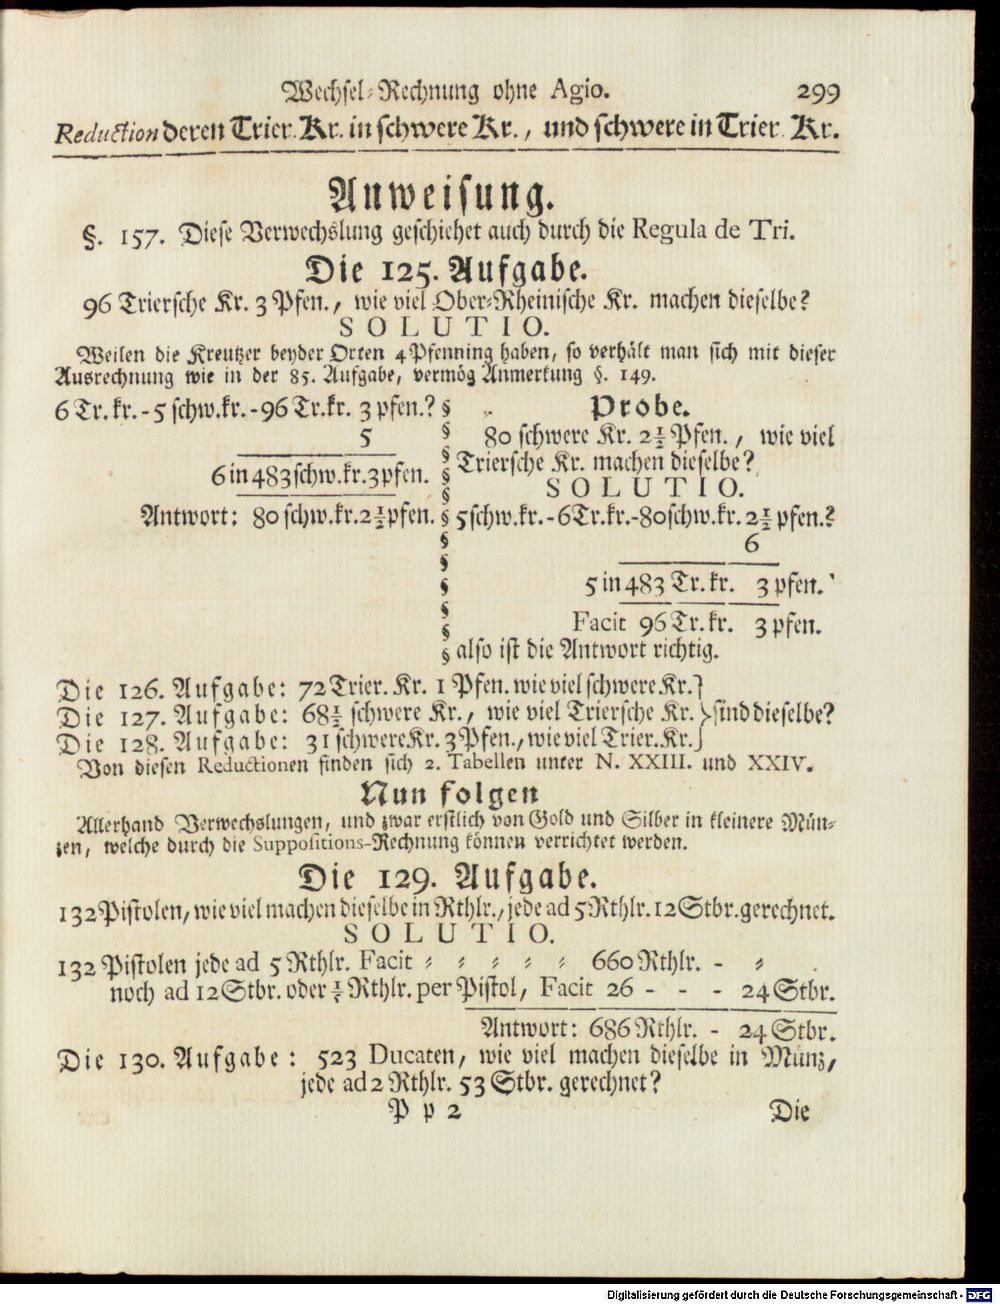 Wechsel-Rechnung ohne Agio. 299
Reduction deren Trier. Kr. in schwere Kr., und schwere in Trier. Kr.
Anweisung.
§. 157. Diese Verwechslung geschiehet auch durch die Regula de Tri.
Die 125. Aufgabe.
96 Triersche Kr. 3 Pfen., wie viel Ober-Rheinische Kr. machen dieselbe?
SOLUTIO.
Weilen die Kreutzer beyder Orten 4 Pfenning haben, so verhält man sich mit dieser
Ausrechnung wie in der 85. Aufgabe, vermög Anmerkung §. 149.
6 Tr. kr. - 5 schw. kr. - 96 Tr. kr. 3 pfen.?
5
6 in 483 schw. kr. 3 pfen.
Antwort: 80 schw. kr. 2½ pfen.
Probe.
80 schwere Kr. 2½ Pfen., wie viel
Triersche Kr. machen dieselbe?
SOLUTIO.
5 schw. kr. - 6 Tr. kr. - 80 schw. kr. 2½ pfen.?
6
5 in 483 Tr. kr. 3 pfen.
Facit 96 Tr. kr. 3 pfen.
also ist die Antwort richtig.
Die 126. Aufgabe: 72 Trier. Kr. 1 Pfen. wie viel schwere Kr.
Die 127. Aufgabe: 68½ schwere Kr., wie viel Triersche Kr. } sind dieselbe?
Die 128. Aufgabe: 31 schwere Kr. 3 Pfen., wie viel Trier. Kr.
Von diesen Reductionen finden sich 2. Tabellen unter N. XXIII. und XXIV.
Nun folgen
Allerhand Verwechslungen, und zwar erstlich von Gold und Silber in kleinere Mün-
zen, welche durch die Suppositions-Rechnung können verrichtet werden.
Die 129. Aufgabe.
132 Pistolen, wie viel machen dieselbe in Rthlr., jede ad 5 Rthlr. 12 Stbr. gerechnet.
SOLUTIO.
132 Pistolen jede ad 5 Rthlr. Facit - - - - - 660 Rthlr. - -
noch ad 12 Stbr. oder ⅕ Rthlr. per Pistol, Facit 26 - - - 24 Stbr.
Antwort: 686 Rthlr. - 24 Stbr.
Die 130. Aufgabe: 523 Ducaten, wie viel machen dieselbe in Münz,
jede ad 2 Rthlr. 53 Stbr. gerechnet?
Pp 2 Die
Digitalisierung gefördert durch die Deutsche Forschungsgemeinschaft - DFG